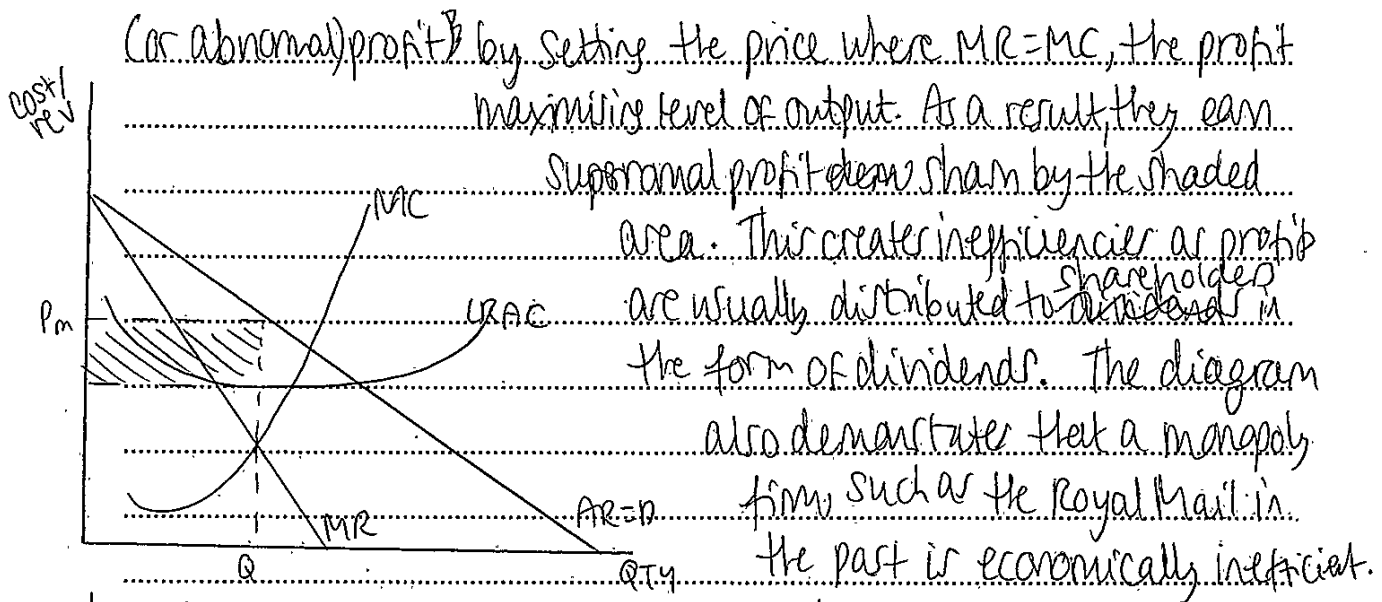 (or abnormal) profits by setting the price where MR=MC, the profit
cost/
rev
maximising level of output. As a result, they earn
supernormal profit shown by the shaded
MC
area. This creates inefficiencies as profits
shareholders
Pm
LRAC
are usually distributed to dividends in
the form of dividends. The diagram
also demonstrates that a monopoly
firm, such as the Royal Mail in
AR=D
MR
the past is economically inefficient.
Q
QTY